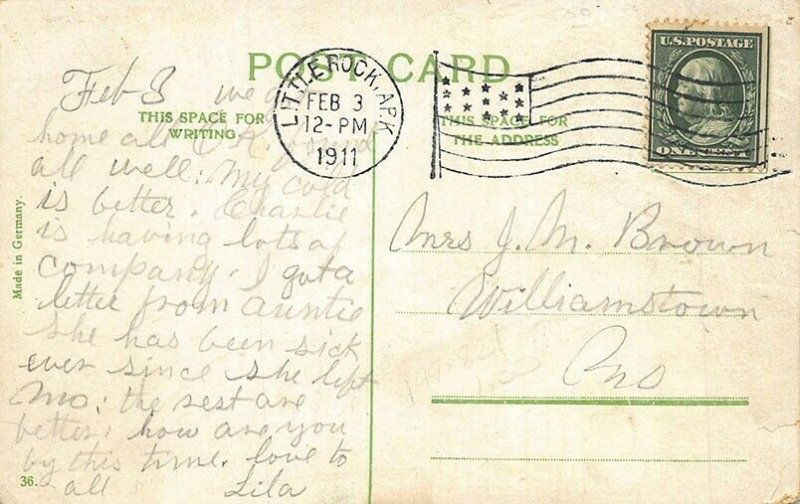 POST CARD
THIS SPACE FOR
WRITING
THIS SPACE FOR
THE ADDRESS
LITTLE ROCK, ARK
FEB 3
12-PM
1911
U.S. POSTAGE
ONE CENT
Made in Germany.
Feb 3 we
home all O.K. found
all well: My cold
is better. Charlie
is having lots of
company. I got a
letter from auntie
she has been sick
ever since she left
Mo: the rest are
better. how are you
by this time. love to
all Lila
Mrs J. M. Brown
Williamstown
Mo
36.